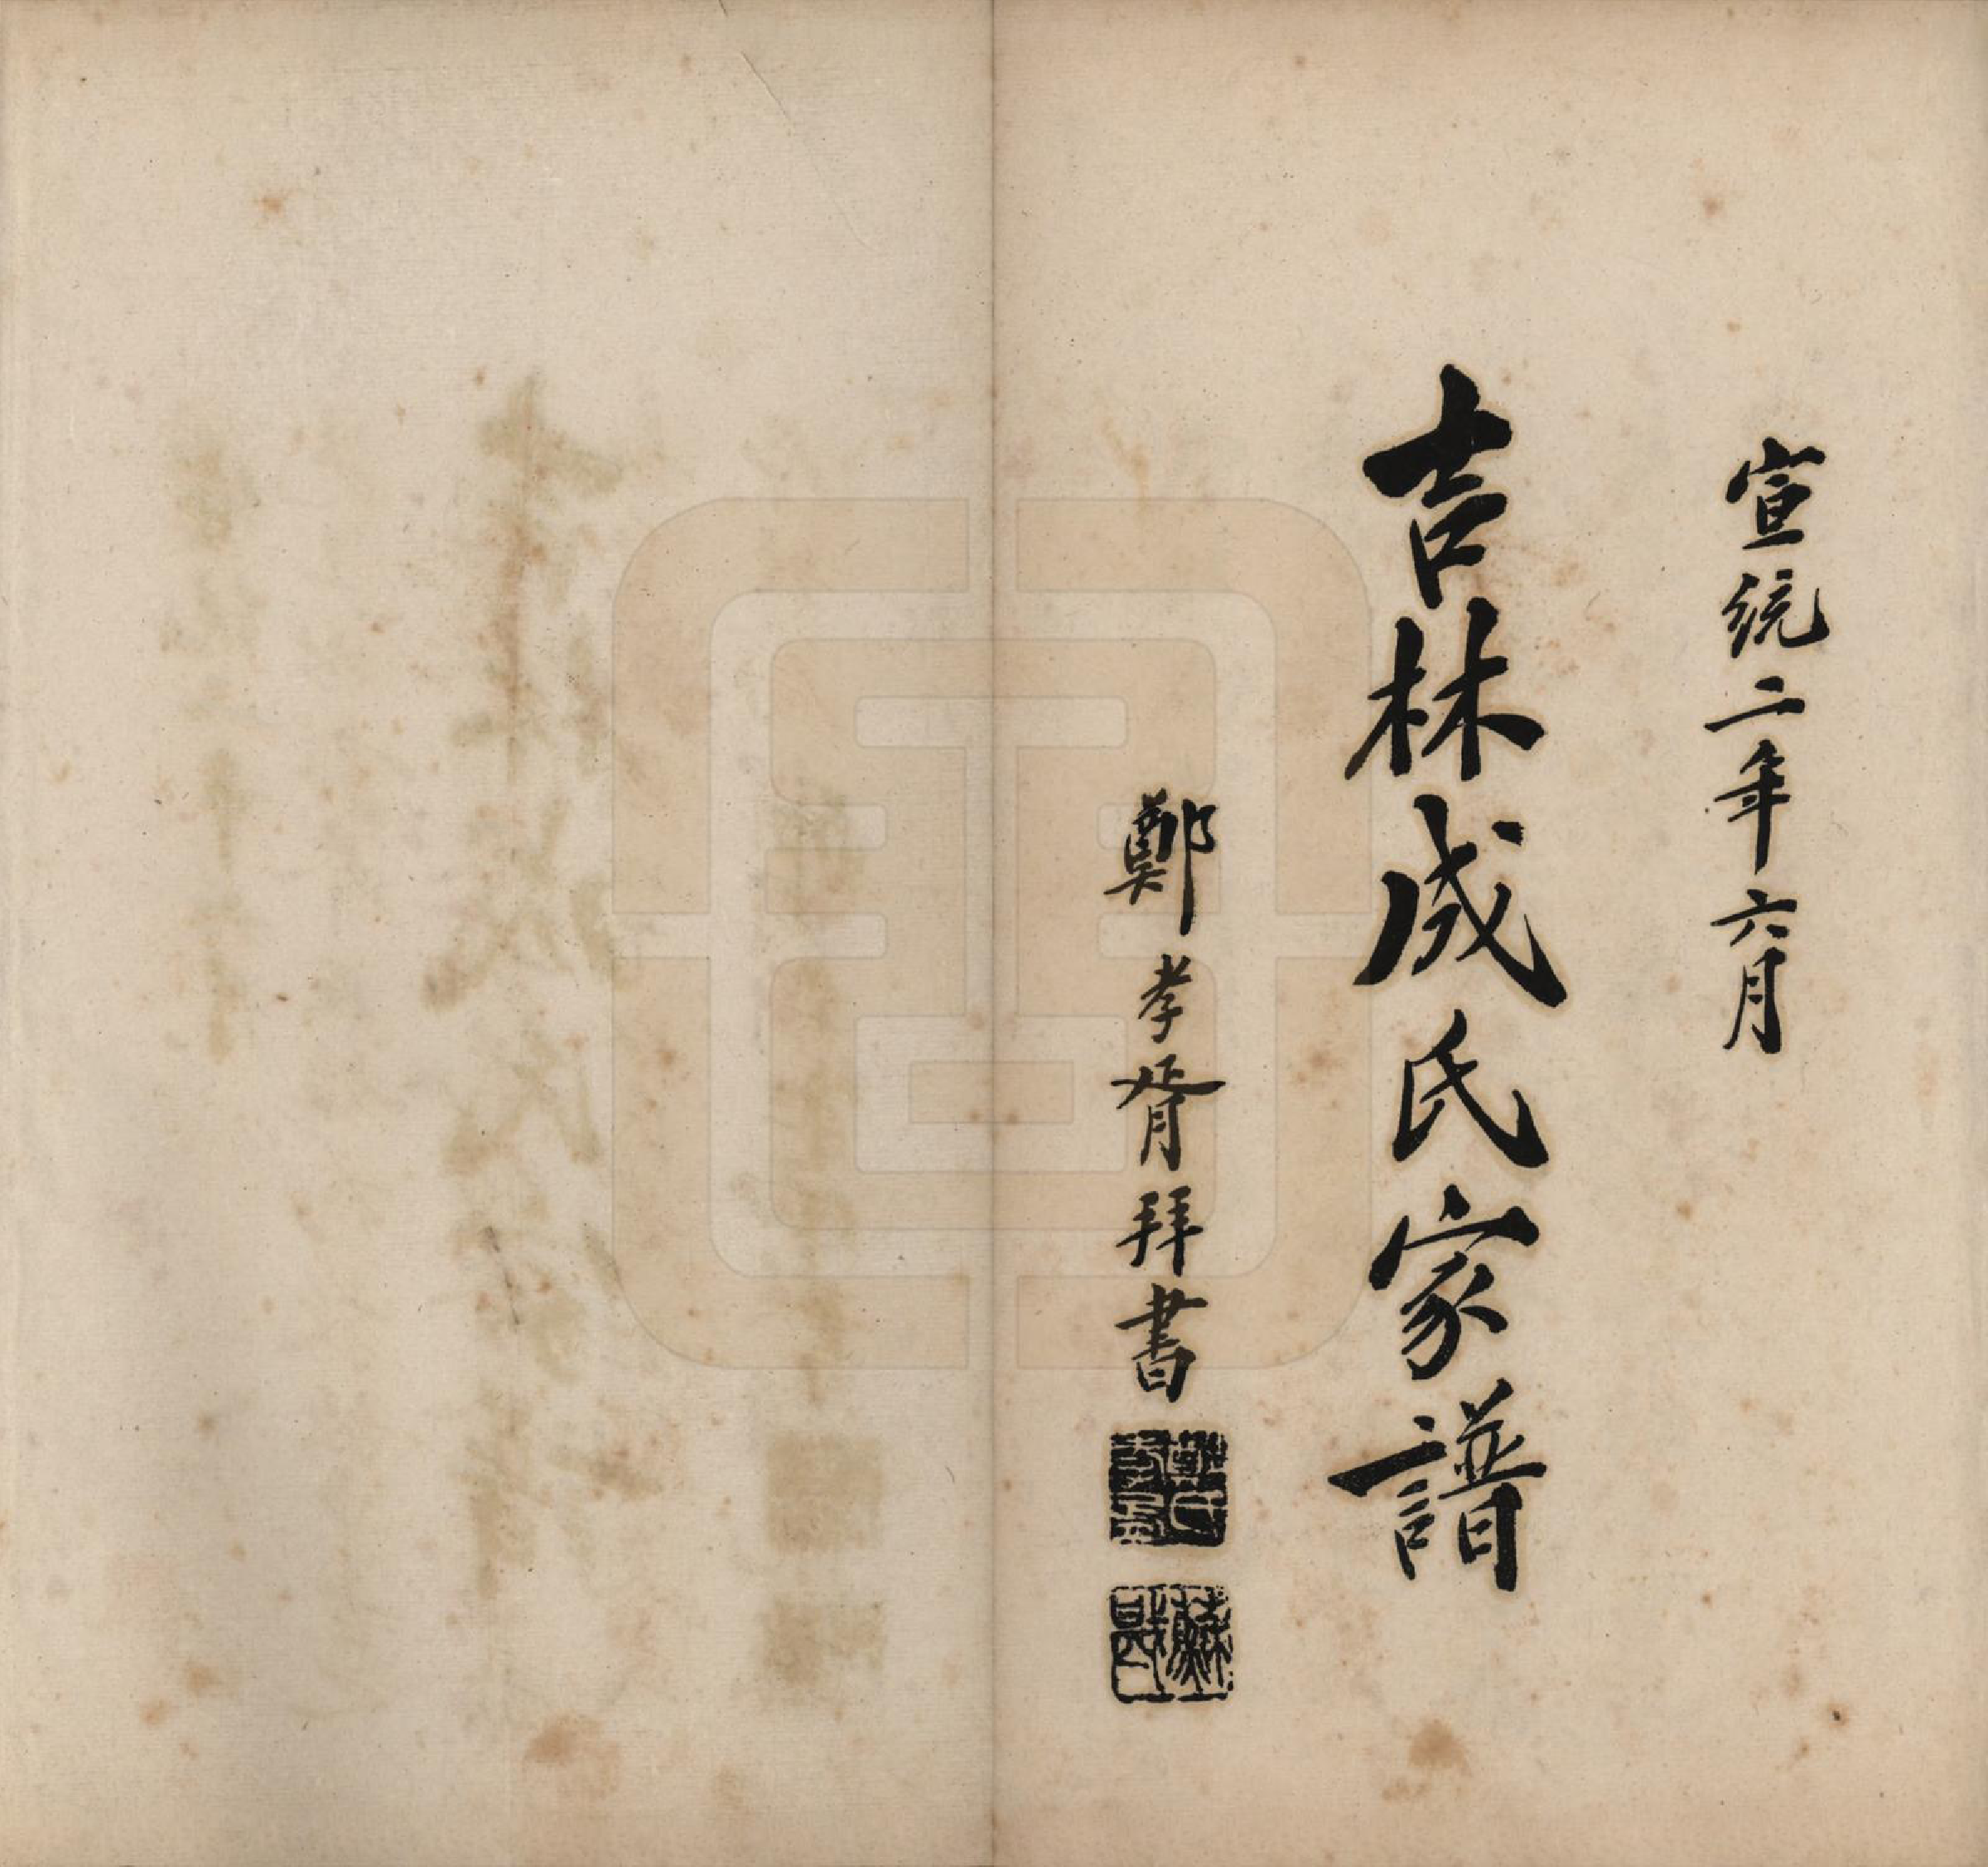 宣統二年六月
吉林成氏家譜
鄭孝胥拜書